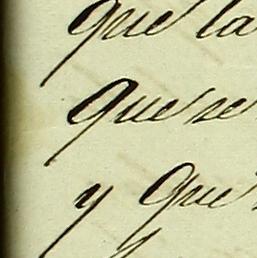 que la
que se
y que